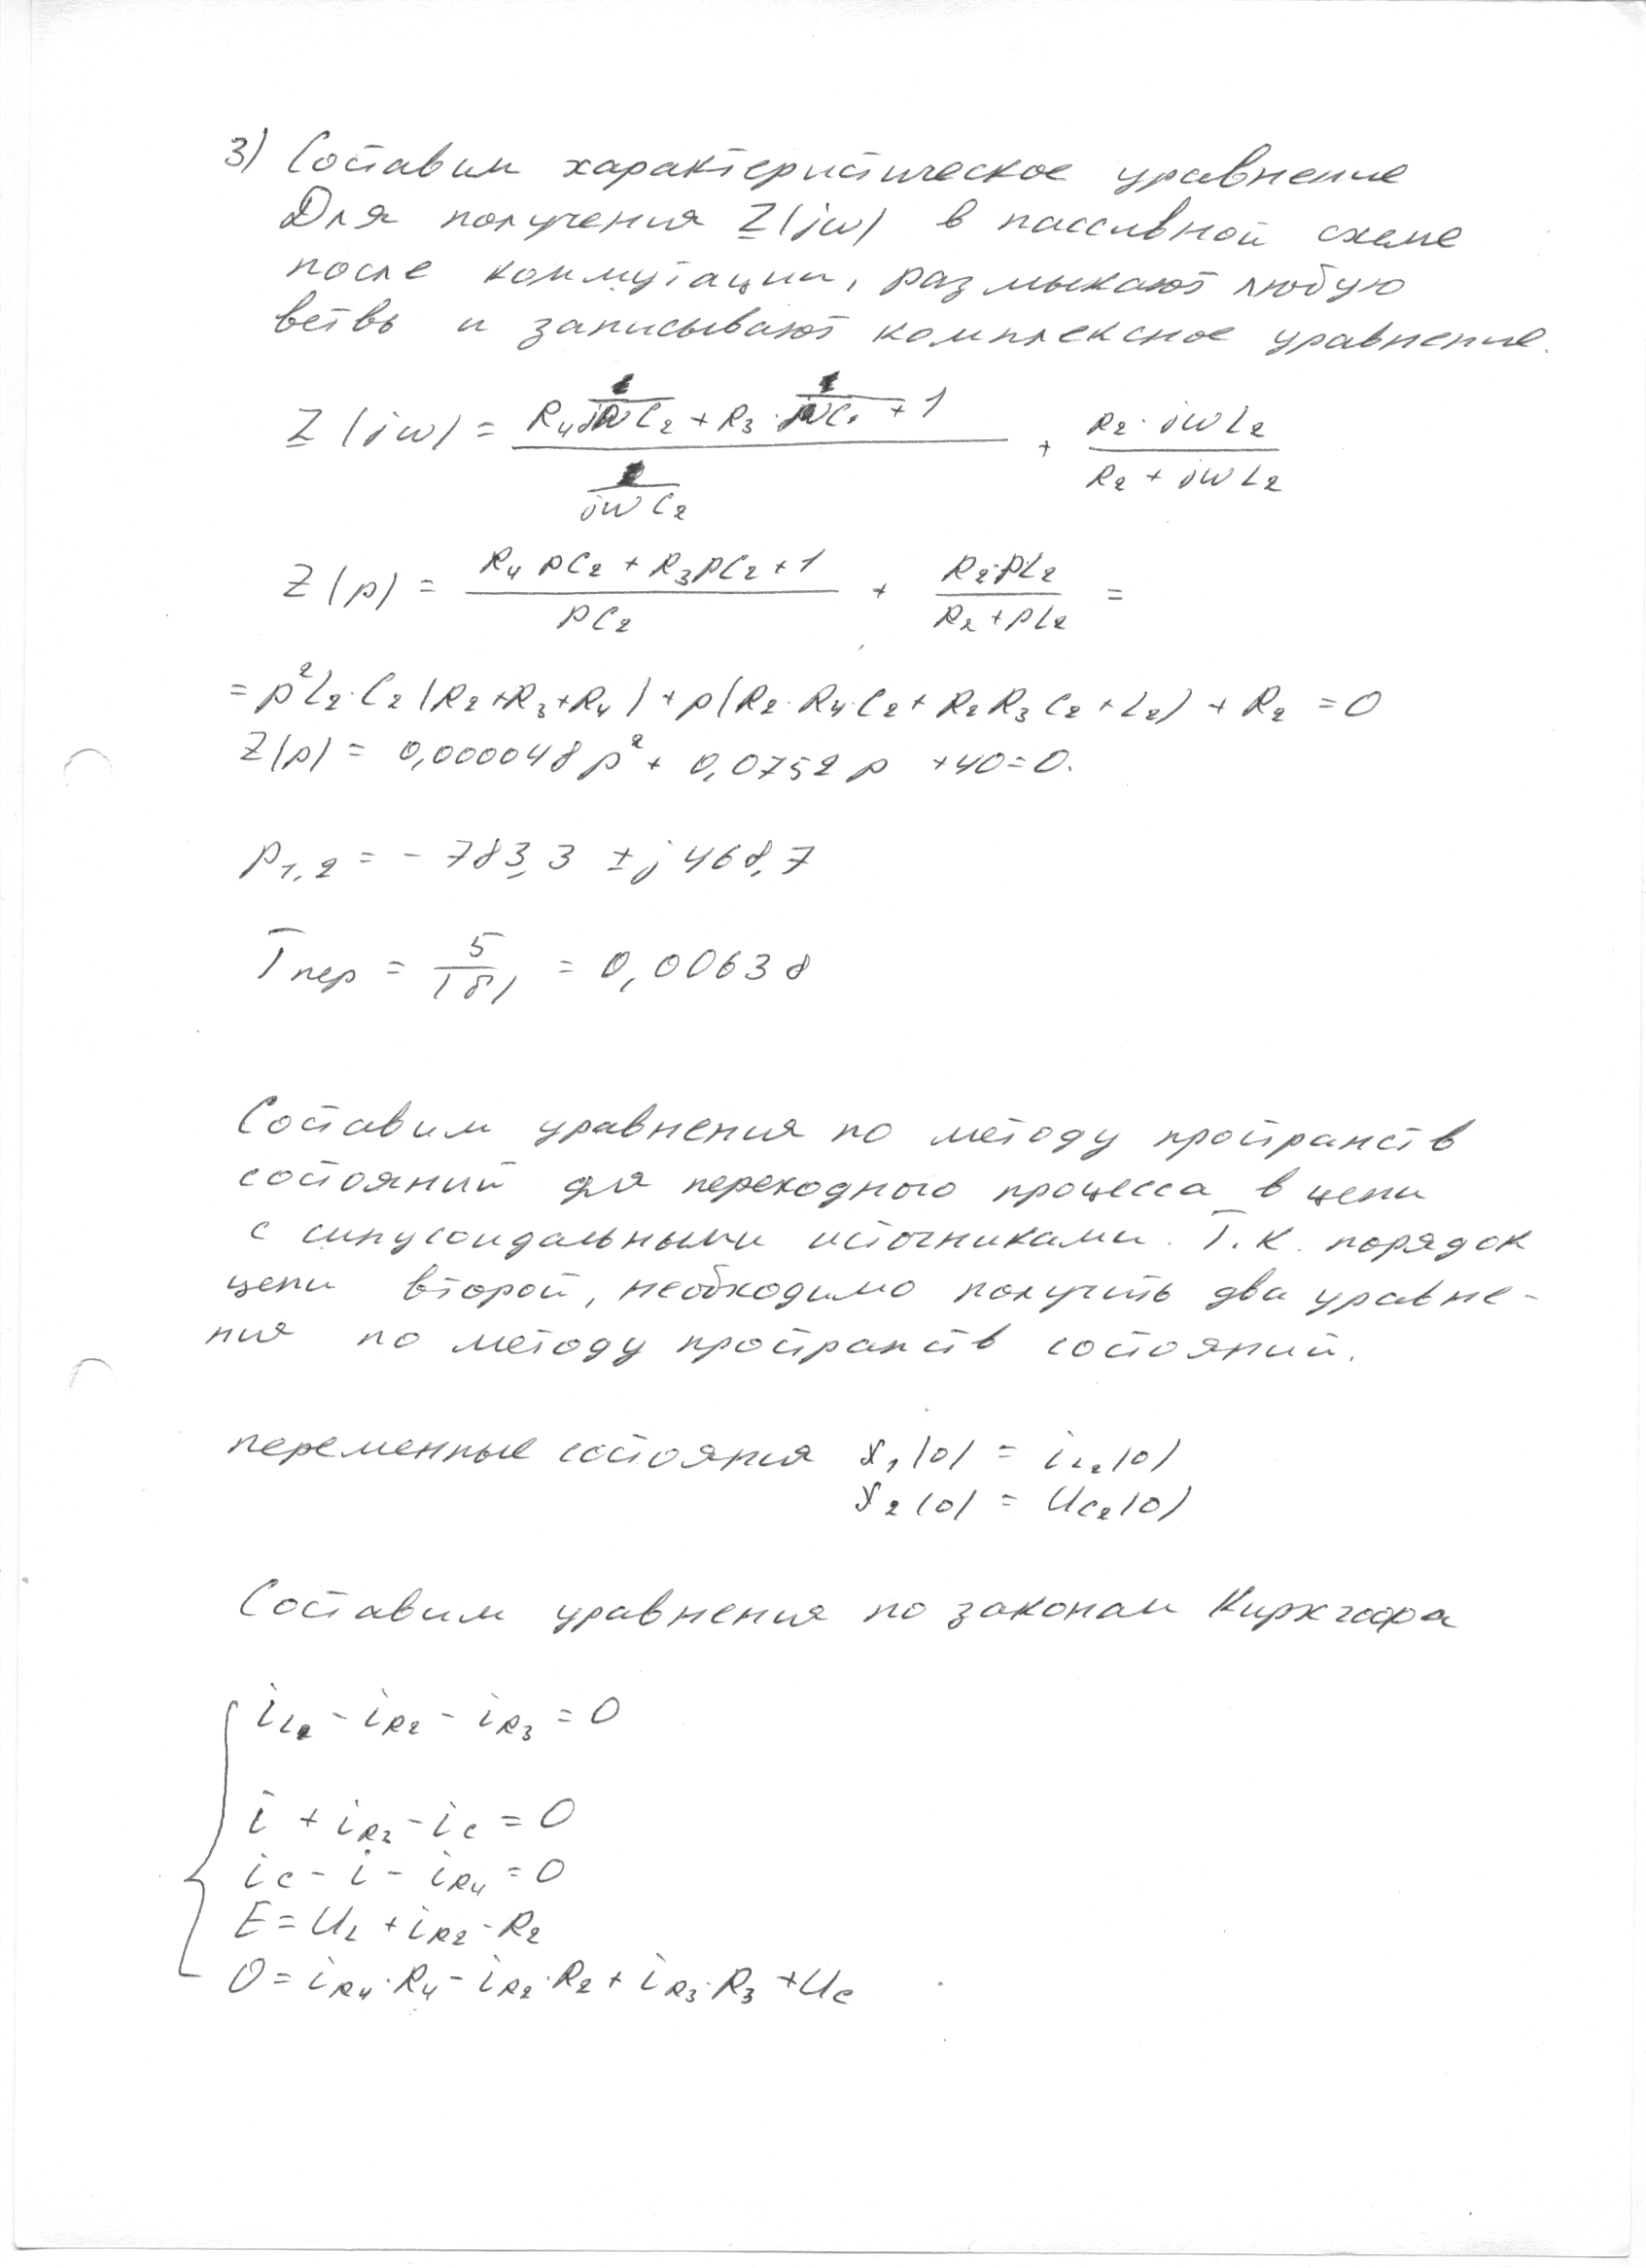 3) Составим характеристическое уравнение
Для получения Z(jω) в пассивной схеме
после коммутации, размыкают любую
ветвь и записывают комплексное уравнение.
Z(jω) = (R₄jωC₂ + R₃·jωC₂ + 1) / (jωC₂) + (R₂·jωL₂) / (R₂ + jωL₂)
Z(p) = (R₄pC₂ + R₃pC₂ + 1) / (pC₂) + (R₂·pL₂) / (R₂ + pL₂) =
= p²L₂·C₂(R₂+R₃+R₄) + p(R₂·R₄·C₂ + R₂R₃C₂ + L₂) + R₂ = 0
Z(p) = 0,000048p² + 0,0752p + 40 = 0.
p₁,₂ = - 783,3 ± j 468,7
Tпер = 5/|δ| = 0,00638
Составим уравнения по методу пространств
состояний для переходного процесса в цепи
с синусоидальными источниками. Т.к. порядок
цепи второй, необходимо получить два уравне-
ния по методу пространств состояний.
переменные состояния x₁(0) = i_L₂(0)
x₂(0) = U_C₂(0)
Составим уравнения по законам Кирхгофа
i_L₂ - i_R₂ - i_R₃ = 0
i + i_R₂ - i_C = 0
i_C - i - i_R₄ = 0
E = U_L + i_R₂·R₂
0 = i_R₄·R₄ - i_R₂·R₂ + i_R₃·R₃ + U_C